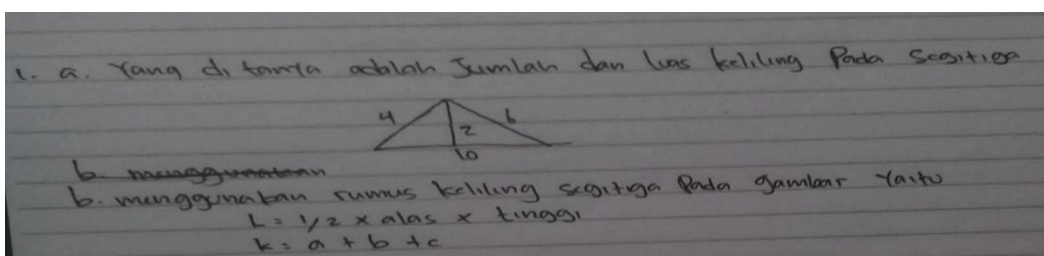 1. a. Yang di tanya adalah Jumlah dan luas keliling Pada Segitiga
4 6
2
10
b. menggunakan
b. menggunakan rumus keliling segitiga Pada gambar Yaitu
L = 1/2 x alas x tinggi
k = a + b + c